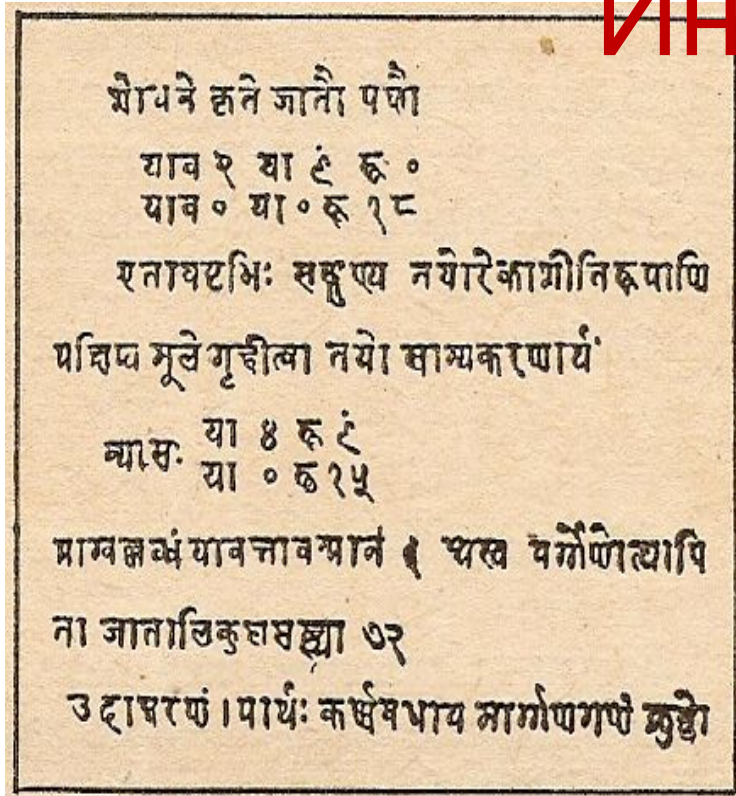 ИН
शोधने कृते जातौ पक्षौ
याव २ या ९ं रू ०
याव ० या ० रू १८
एतावष्टभिः सङ्गुण्य तयोरेकाशीतिरूपाणि
प्रक्षिप्य मूले गृहीत्वा तयो साम्यकरणार्थं
न्यासः या ४ रू ९ं
या ० रू १५
प्राग्वल्लब्धं यावत्तावन्मानं ६ अस्य वर्गेणोत्थापि
ता जातालिकुलसङ्ख्या ७२
उदाहरणं । पार्थः कर्णवधाय मार्गणगणं क्रुद्धो